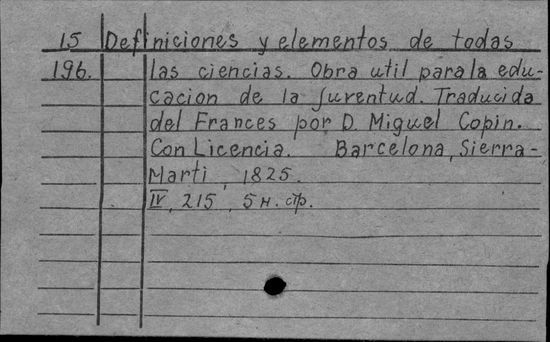 15 Definiciones y elementos de todas
196. las ciencias. Obra util para la edu-
cacion de la juventud. Traducida
del Frances por D. Miguel Copin.
Con Licencia. Barcelona, Sierra-
Marti, 1825.
IV, 215, 5 н. стр.